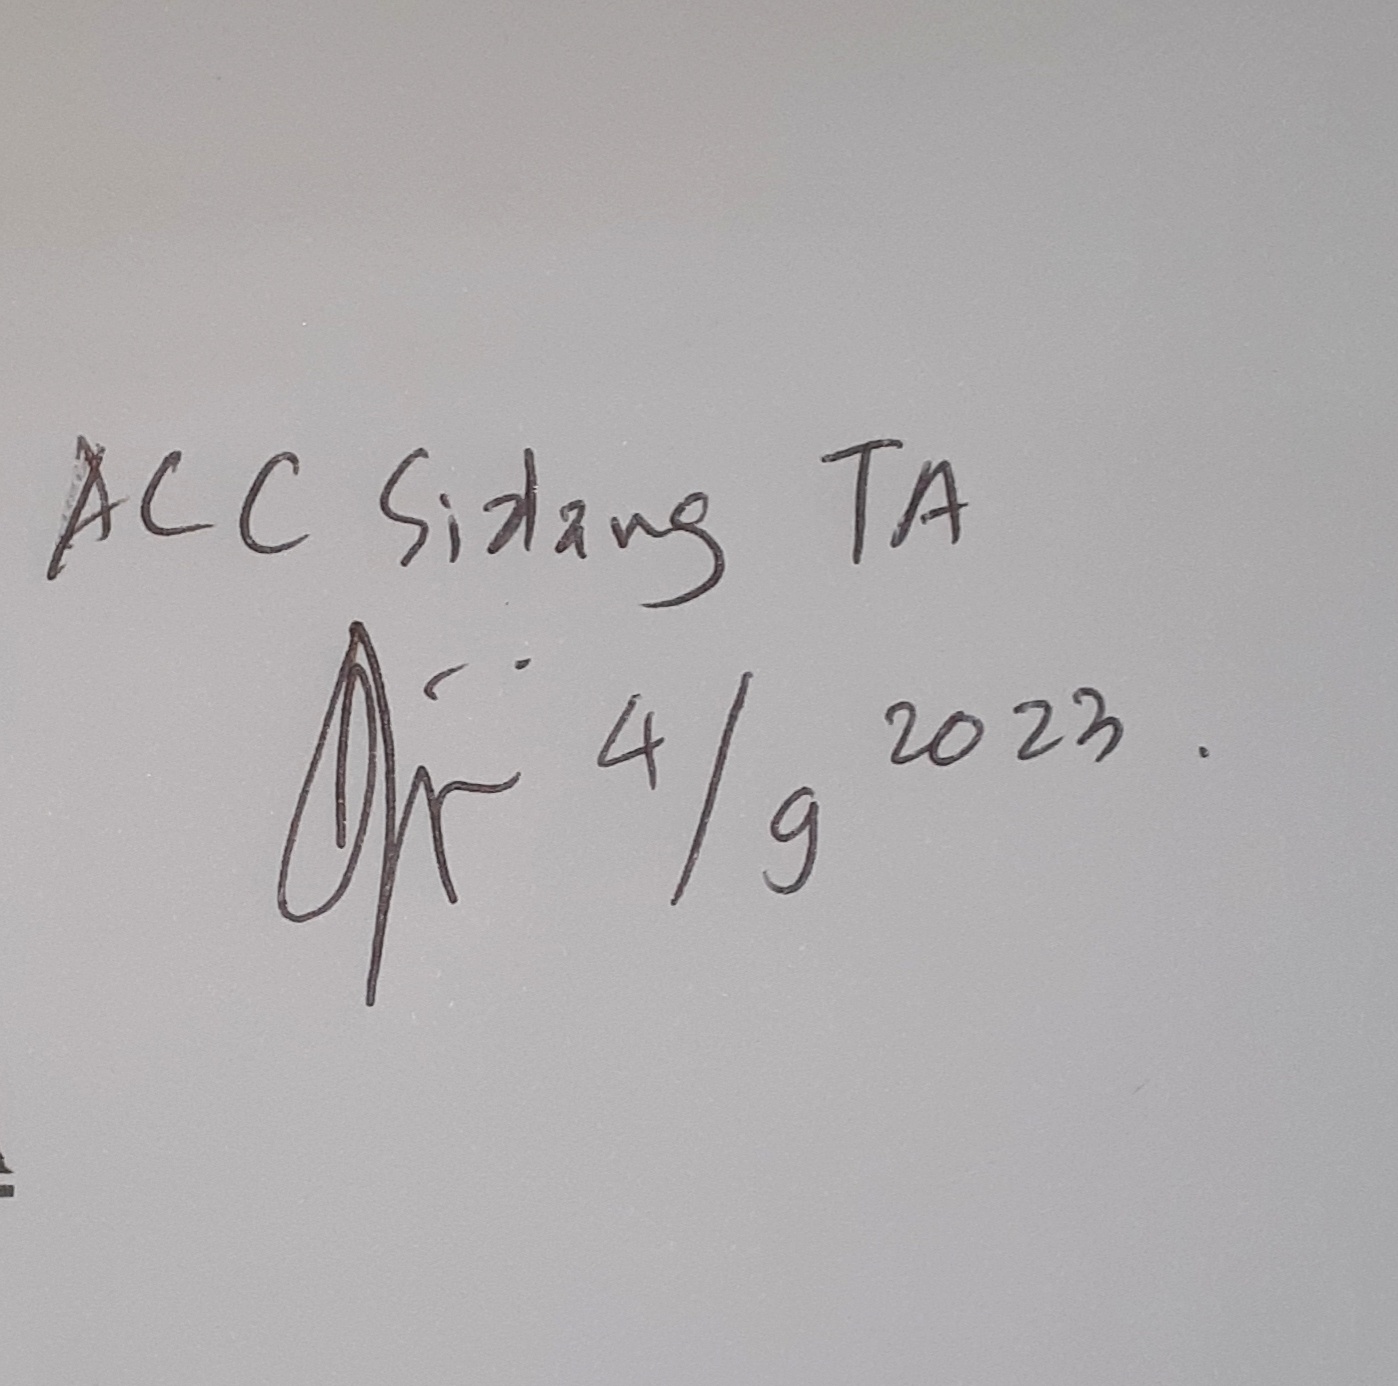 ACC Sidang TA
4/9 2023.